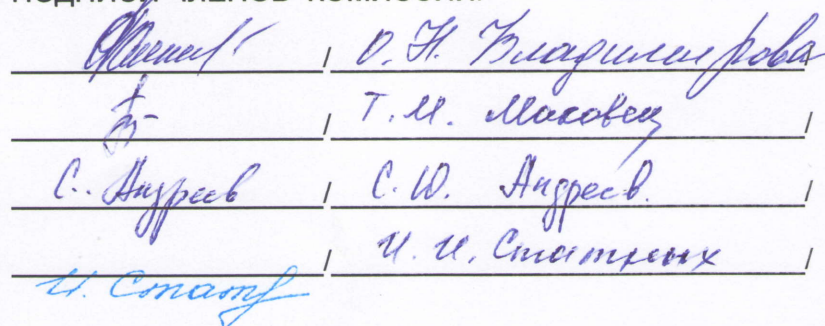 / О. Н. Владимирова /
/ Т. М. Маковец /
С. Андреев / С. Ю. Андреев. /
/ И. И. Статных /
И. Стат